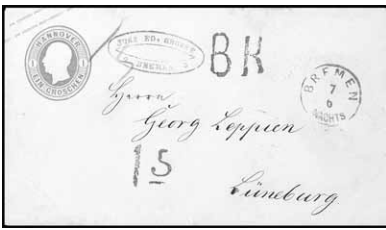 HANNOVER
1 1
EIN GROSCHEN
BREMEN
BH
BREMEN
7
6
NACHTS
Herrn
Georg Leppien
15
Lüneburg.